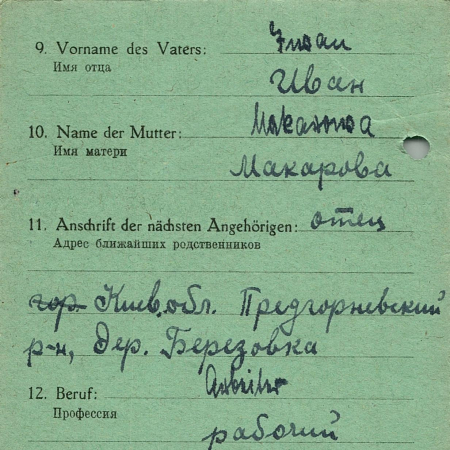 9. Vorname des Vaters: Iwan
Имя отца
Иван
10. Name der Mutter: Makarowa
Имя матери
Макарова
11. Anschrift der nächsten Angehörigen: отец
Адрес ближайших родственников
гор. Киев. обл. Предгорневский
р-н, дер. Березовка
12. Beruf: Arbeiter
Профессия
рабочий